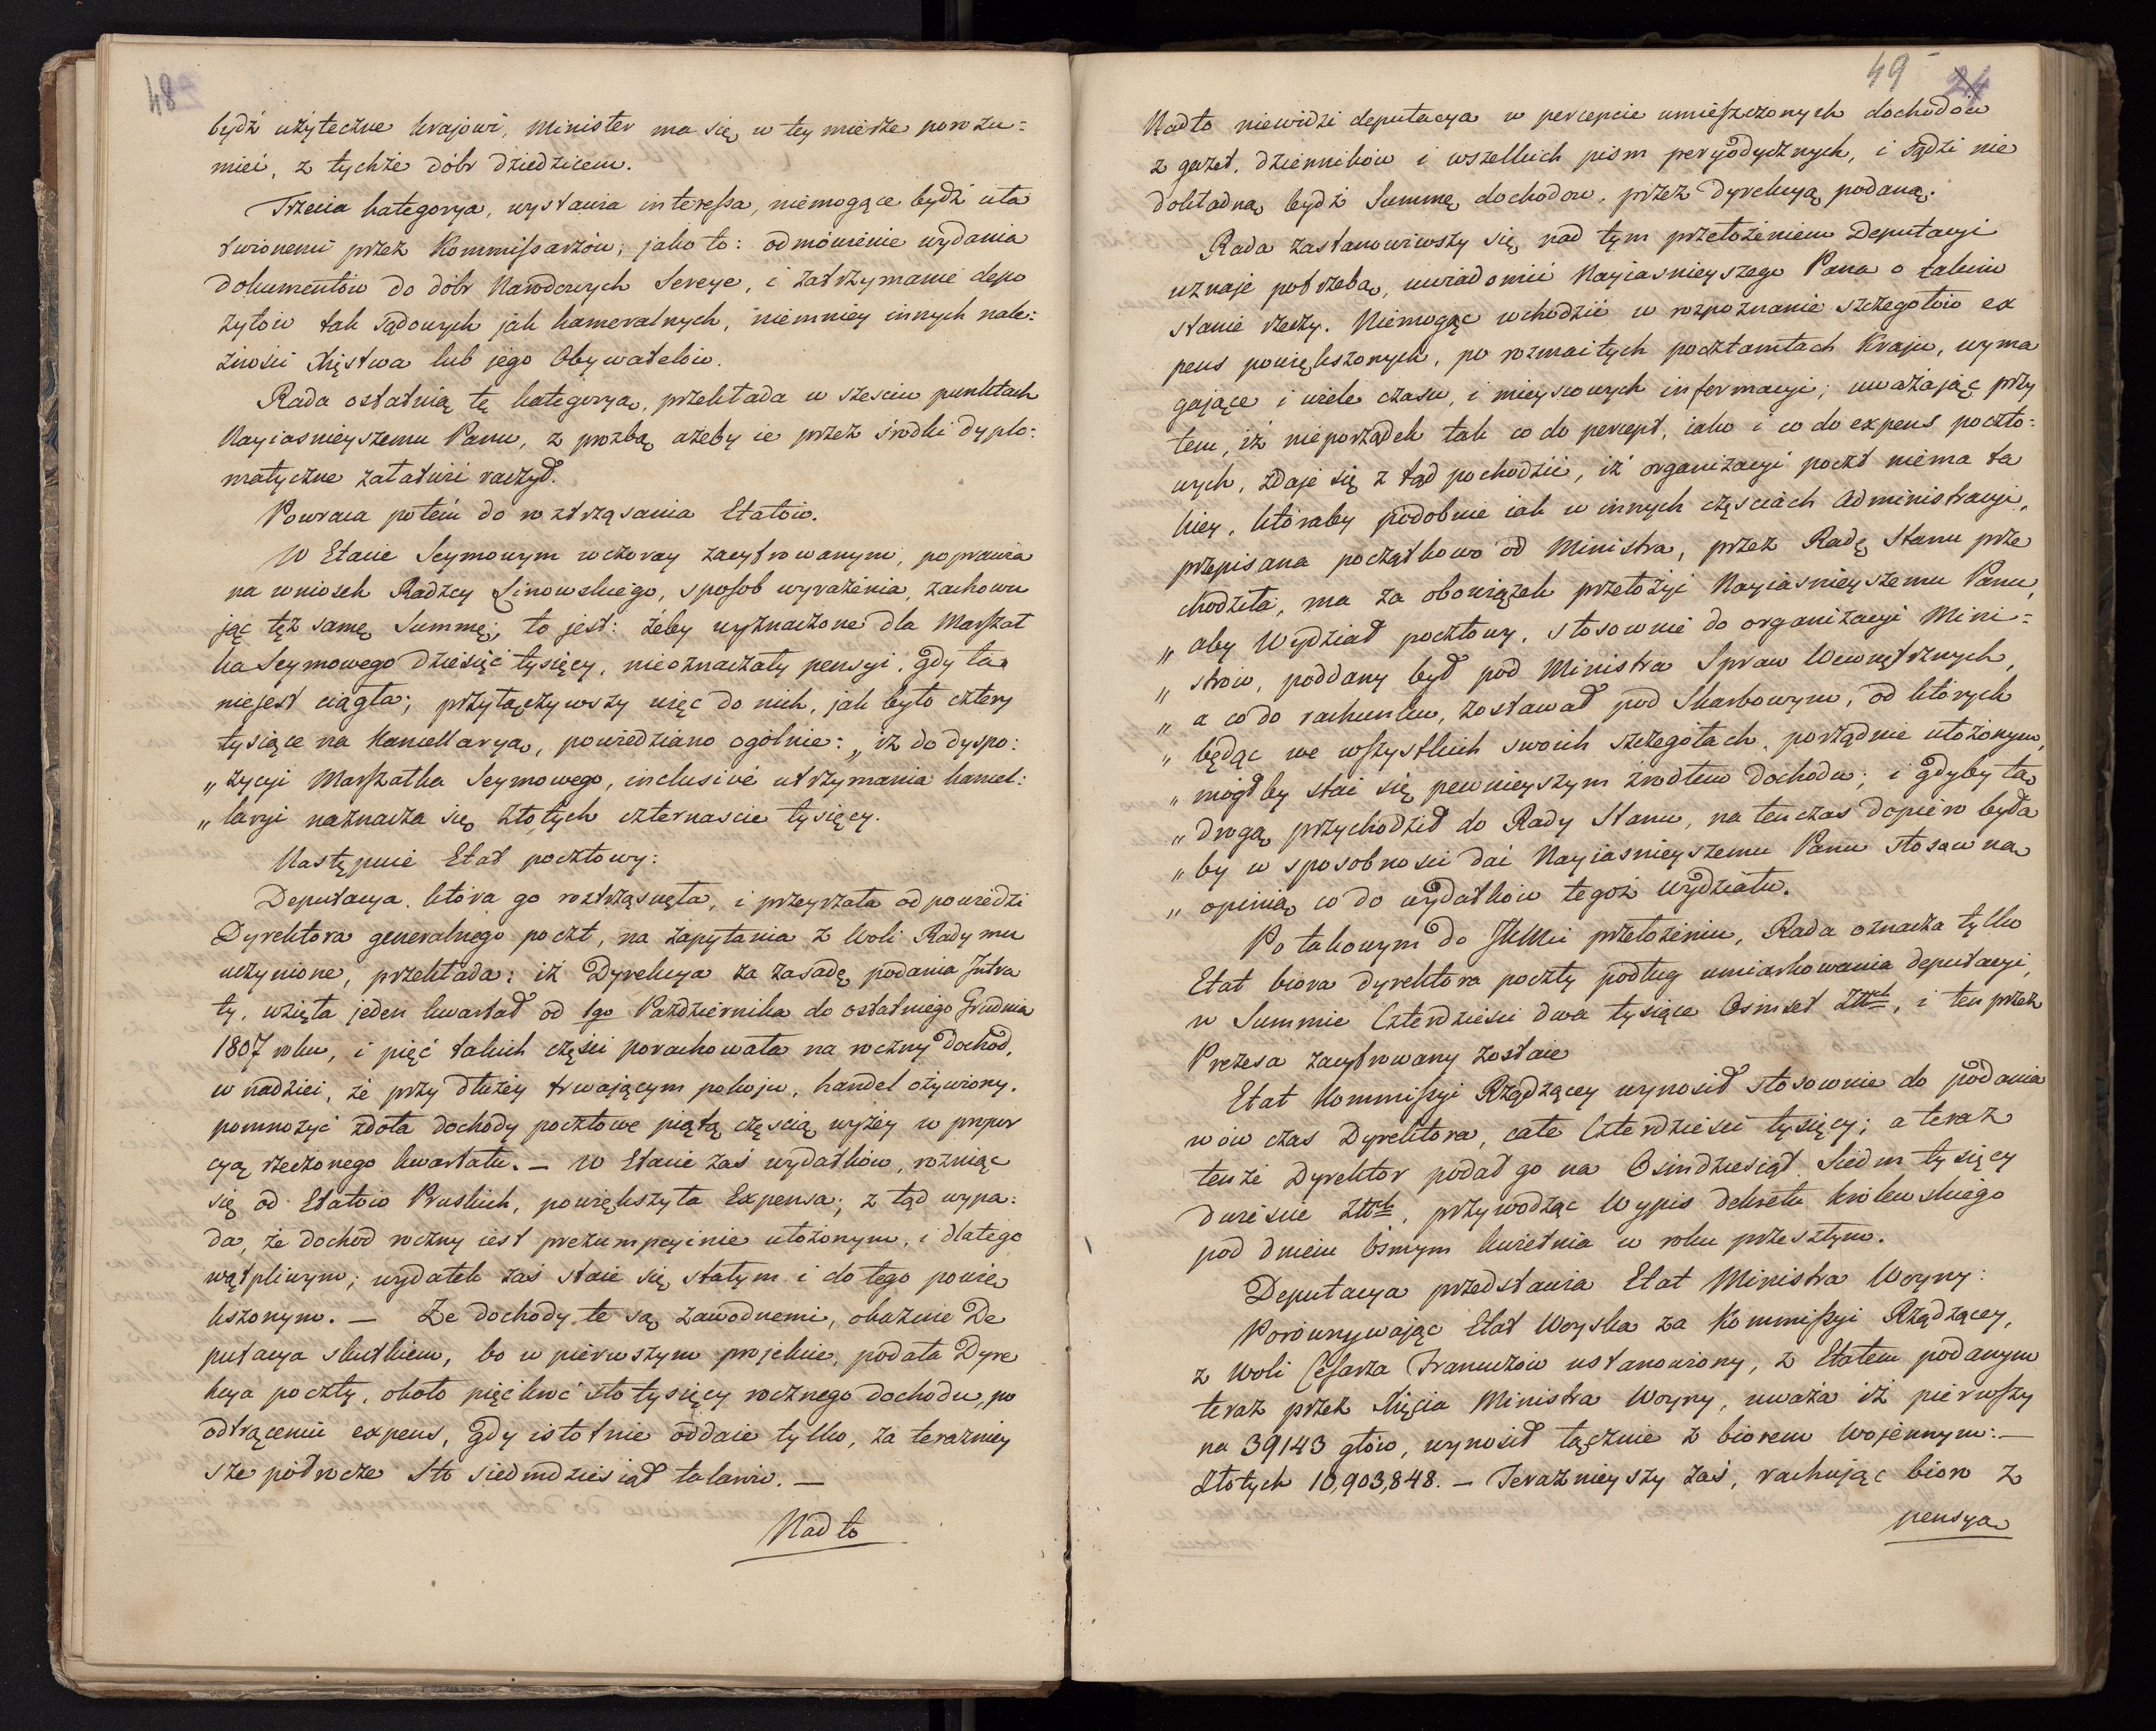 48
bydź użyteczne krajowi, Minister ma się w tey mierze porozu=
mieć, z tychże dóbr dziedzicem.
Trzecia kategorya, wystawia interessa, niemogące bydź uła
twionemi przez Kommissarzów; jako to: odmówienie wydania
dokumentów do dóbr Narodowych Sereye, i zatrzymanie depo
zytów tak sądowych jak kameralnych, niemniey innych nale=
żności Xięstwa lub jego Obywatelów.
Rada ostatnią tę kategoryą, przekłada w sześciu punktach
Nayiasnieyszemu Panu, z prozbą ażeby ie przez środki dyplo=
matyczne załatwić raczył.
Powraca potém do roztrząsania Etatów.
W Etacie Seymowym wczoray zacyfrowanym, poprawia
na wniosek Radzcy Linowskiego, sposob wyrażenia, zachowu
jąc tęż samę Summę; to jest: żeby wyznaczone dla Marszał
ka Seymowego dziesięć tysięcy, nieoznaczały pensyi, gdy ta
niejest ciągła; przyłączywszy więc do nich, jak było cztery
tysiące na Kancellaryą, powiedziano ogólnie: „iż do dyspo:
„zycyi Marszałka Seymowego, inclusivé utrzymania kancel:
„laryi naznacza się złotych czternascie tysięcy.
Następuie Etat pocztowy:
Deputacya, która go roztrząsnęła, i przeyrzała odpowiedzi
Dyrektora generalnego poczt, na zapytania z woli Rady mu
uczynione, przekłada: iż Dyrekcya za zasadę podania Intra
ty, wzięła jeden kwartał od 1go Października do ostatniego Grudnia
1807 roku, i pięć takich części porachowała na roczny dochod,
w nadziei, że przy dłużéy trwającym pokoju, handel ożywiony,
pomnożyć zdoła dochody pocztowe piątą częscią wyżéy w propor
cyą rzeczonego kwartału. — W Etacie zaś wydatków, rozniąc
się od Etatów Pruskich, powiększyła Expensa; z tąd wypa=
da, że dochod roczny iest prezumpcyinie ułożonym, i dlatego
wątpliwym; wydatek zaś staie się stałym i do tego powię
kszonym. — Że dochody te są zawodnemi, okazuie De
putacya skutkiem, bo w pierwszym projekcie, podała Dyre
kcya poczty, około pięćkroć sto tysięcy rocznego dochodu, po
odtrąceniu expens, gdy istotnie oddaie tylko, za teraznięy
sze półrocze sto siedmdziesiąt talarów. —
Nadto
49 24
Nadto niewidzi deputacya w percepcie umieszczonych dochodów
z gazet, dzienników i wszelkich pism peryodycznych, i sądzi nie
dokładną bydź Summę dochodow, przez Dyrekcyą podaną.
Rada zastanowiwszy się nad tym przełożeniem Deputacyi
uznaje potrzebą, uwiadomić Nayiasnieyszego Pana o takim
stanie rzeczy. Niemogąc wchodzić w rozpoznanie szczegołów ex
pens powiększonych, po rozmaitych pocztamtach Kraju, wyma
gające i wiele czasu, i mieyscowych informacyi; uważając przy
tem, iż nieporządek tak co do percept, iako i co do expens poczto=
wych, zdaje się z tąd pochodzić, iż organizacyi poczt niema ta
kiey, któraby podobnie iak w innych częsciach Administracyi,
przepisana początkowo od Ministra, przez Radę Stanu prze
chodziła, ma za obowiązek przełożyć Nayiasnieyszemu Panu,
„ aby Wydział pocztowy, stosownie do organizacyi Mini=
„ strów, poddany był pod Ministra Spraw Wewnętrznych,
„ a co do rachunku, zostawał pod Skarbowym, od których
„ będąc we wszystkich swoich szczegółach, porządnie ułożonym,
„ mógłby stać się pewnieyszym źrodłem dochodu; i gdyby tą
„ drogą przychodził do Rady Stanu, na tenczas dopiéro była
„ by w sposobnosci dać Nayiasnieyszemu Panu stosowną
„ opinią co do wydatków tegoż wydziału.
Po takowym do JKMci przełożeniu, Rada oznacza tylko
Etat biora dyrektora poczty podług umiarkowania deputacyi,
w Summie Czterdzieści dwa tysiące Osmset Złłch, i ten przez
Prezesa zacyfrowany zostaie
Etat Kommissyi Rządzącey wynosił stosownie do podania
wów czas Dyrektora, całe Czterdzieści tysięcy; a teraz
tenże Dyrektor podał go na Osimdziesiąt Siedm tysięcy
dwiescie Złłch, przywodząc Wypis dekretu królewskiego
pod dniem ósmym kwietnia w roku przeszłym.
Deputacya przedstawia Etat Ministra Woyny:
Porównywając Etat Woyska za Kommissyi Rządzącey,
z woli Cesarza Francuzów ustanowiony, z Etatem podanym
teraz przez Xięcia Ministra Woyny, uważa iż pierwszy
na 39143 głów, wynosił łącznie z biorem wojennym: —
Złotych 10,903,848. — Teraznieyszy zaś, rachując bioro z
pensyą